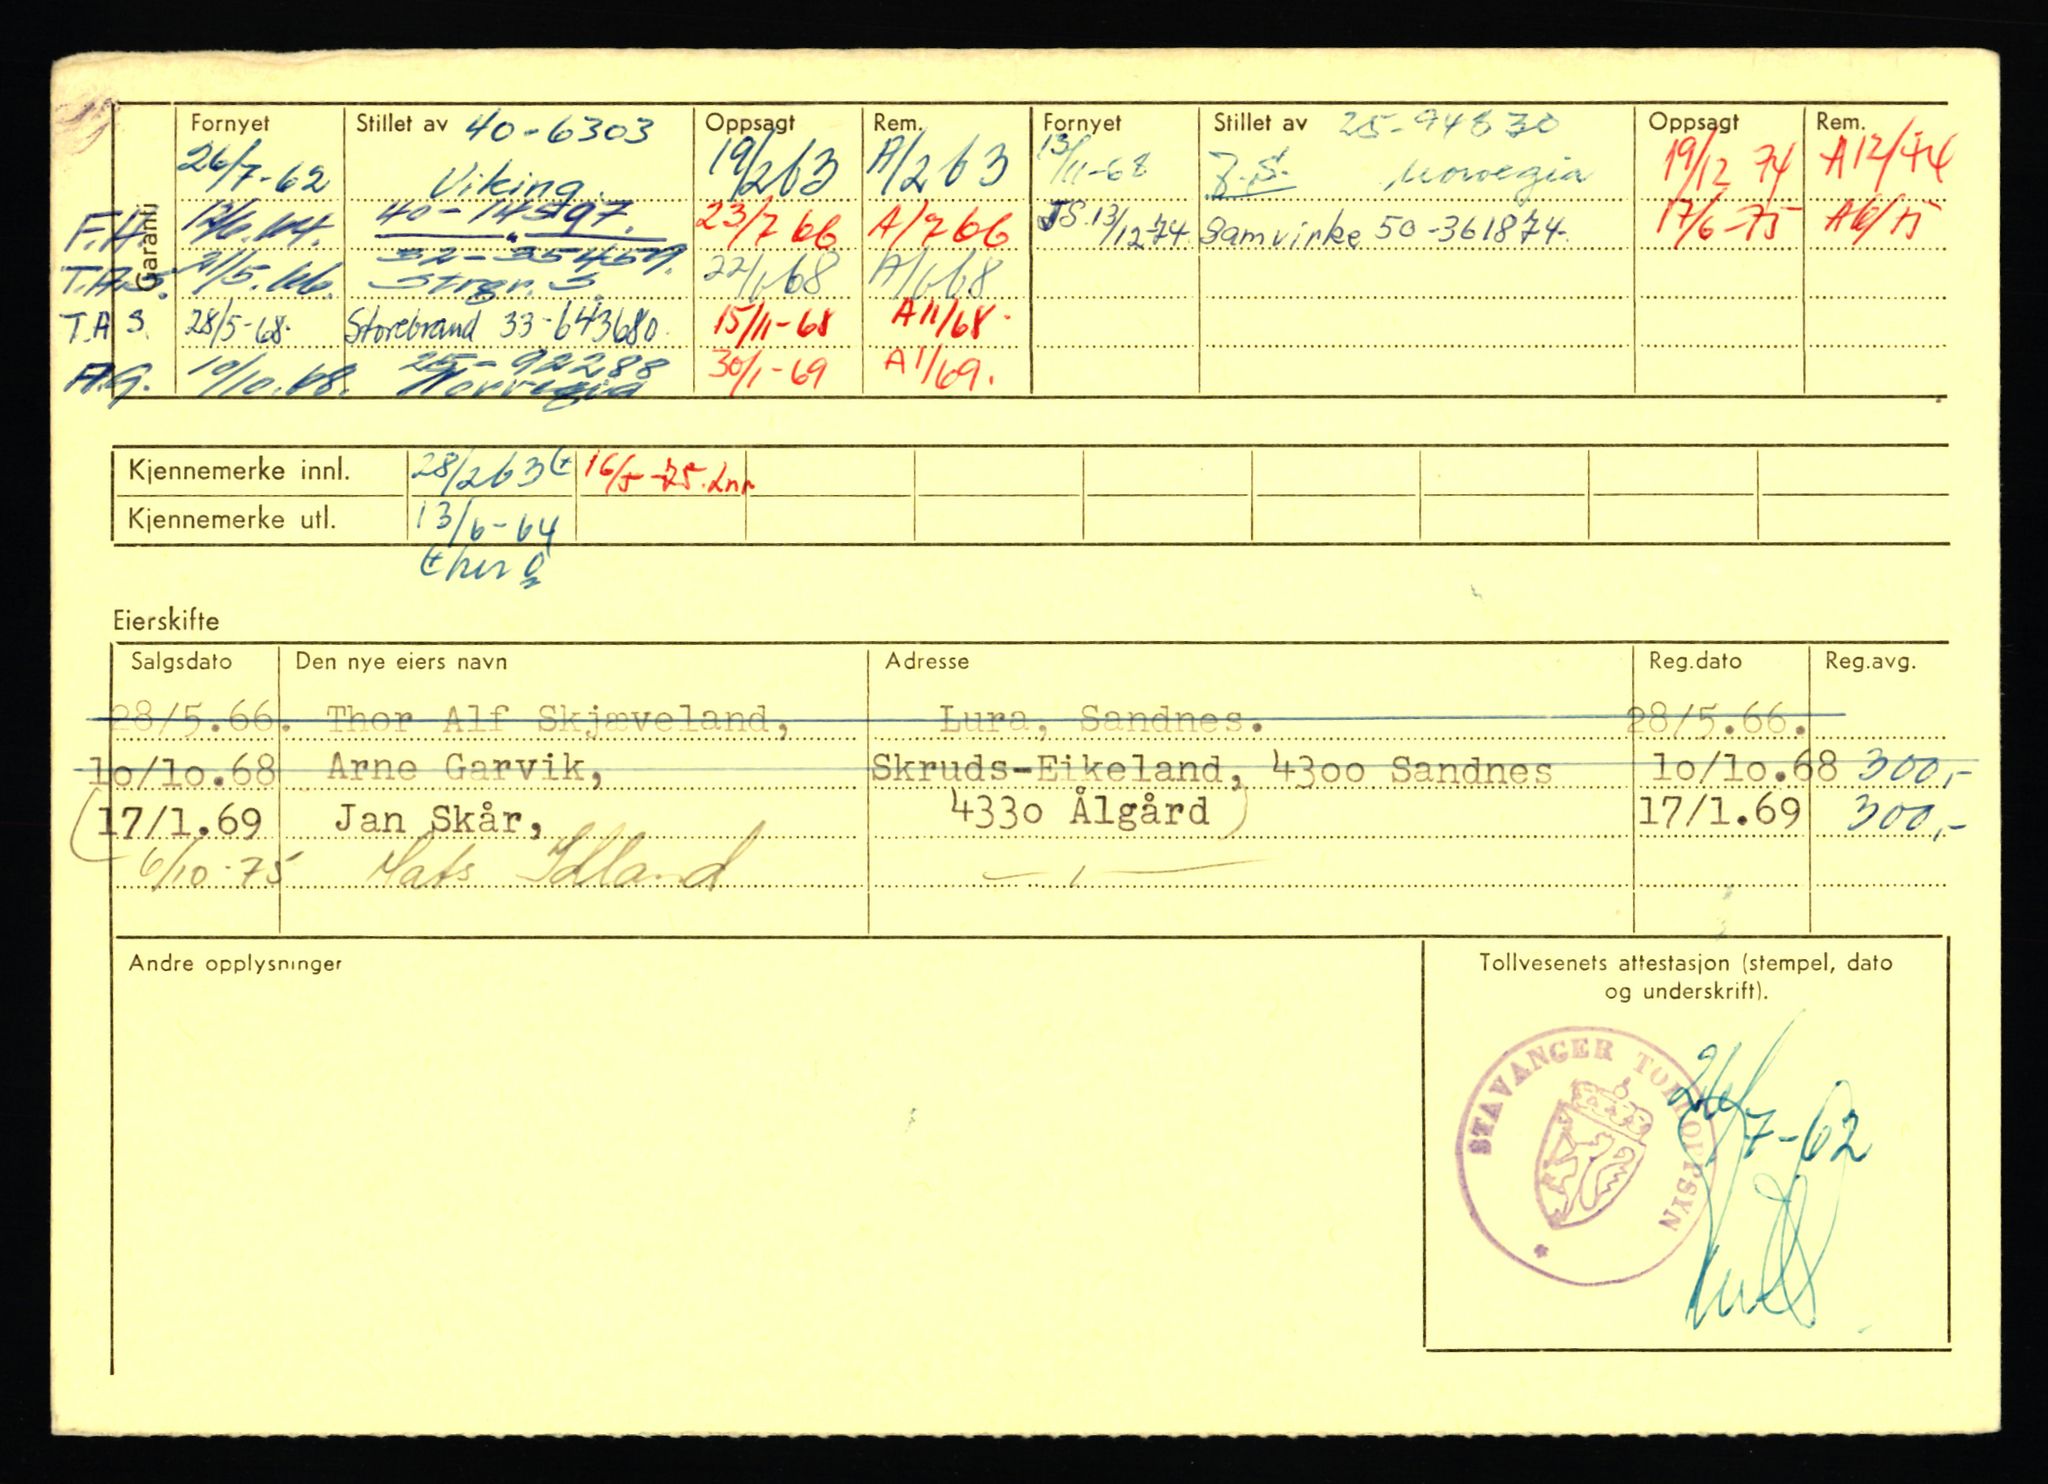 Garanti
Fornyet Stillet av 40-6303 Oppsagt Rem. Fornyet Stillet av 25-94830 Oppsagt Rem.
26/7-62 Viking. 19/2 63 A/2 63 13/11-68 J.S. Norvegia 19/12 74 A 12/74
F.H. 12/6.64. 40-14597. 23/7 66 A/7 66 J.S. 13/12-74 Samvirke 50-361874. 17/6-75 A 6/75
T.A.S. 21/5.66. 32-35469. 22/1 68 A/1 68
T.A.S. 28/5-68. Storebrand 33-643680. 15/11-68 A 11/68.
A.G. 10/10.68. 25-92288 Norvegia 30/1-69 A 1/69.
Kjennemerke innl. 28/2 63 16/5-75.
Kjennemerke utl. 13/6-64
Eierskifte
Salgsdato Den nye eiers navn Adresse Reg.dato Reg.avg.
28/5.66. Thor Alf Skjæveland, Lura, Sandnes. 28/5.66.
10/10.68 Arne Garvik, Skruds-Eikeland, 4300 Sandnes 10/10.68 300,-
(17/1.69 Jan Skår, 4330 Ålgård) 17/1.69 300,-
6/10-75 Mats Idland — " —
Andre opplysninger
Tollvesenets attestasjon (stempel, dato
og underskrift).
STAVANGER TOLLOPPSYN
26/7-62